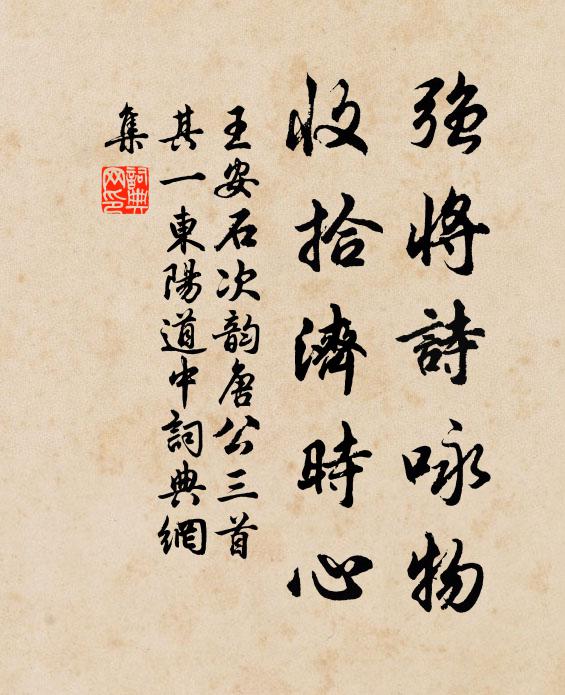 強將詩咏物
收拾濟時心
王安石次韵唐公三首
其一東陽道中詞典網
集
詞典
网印